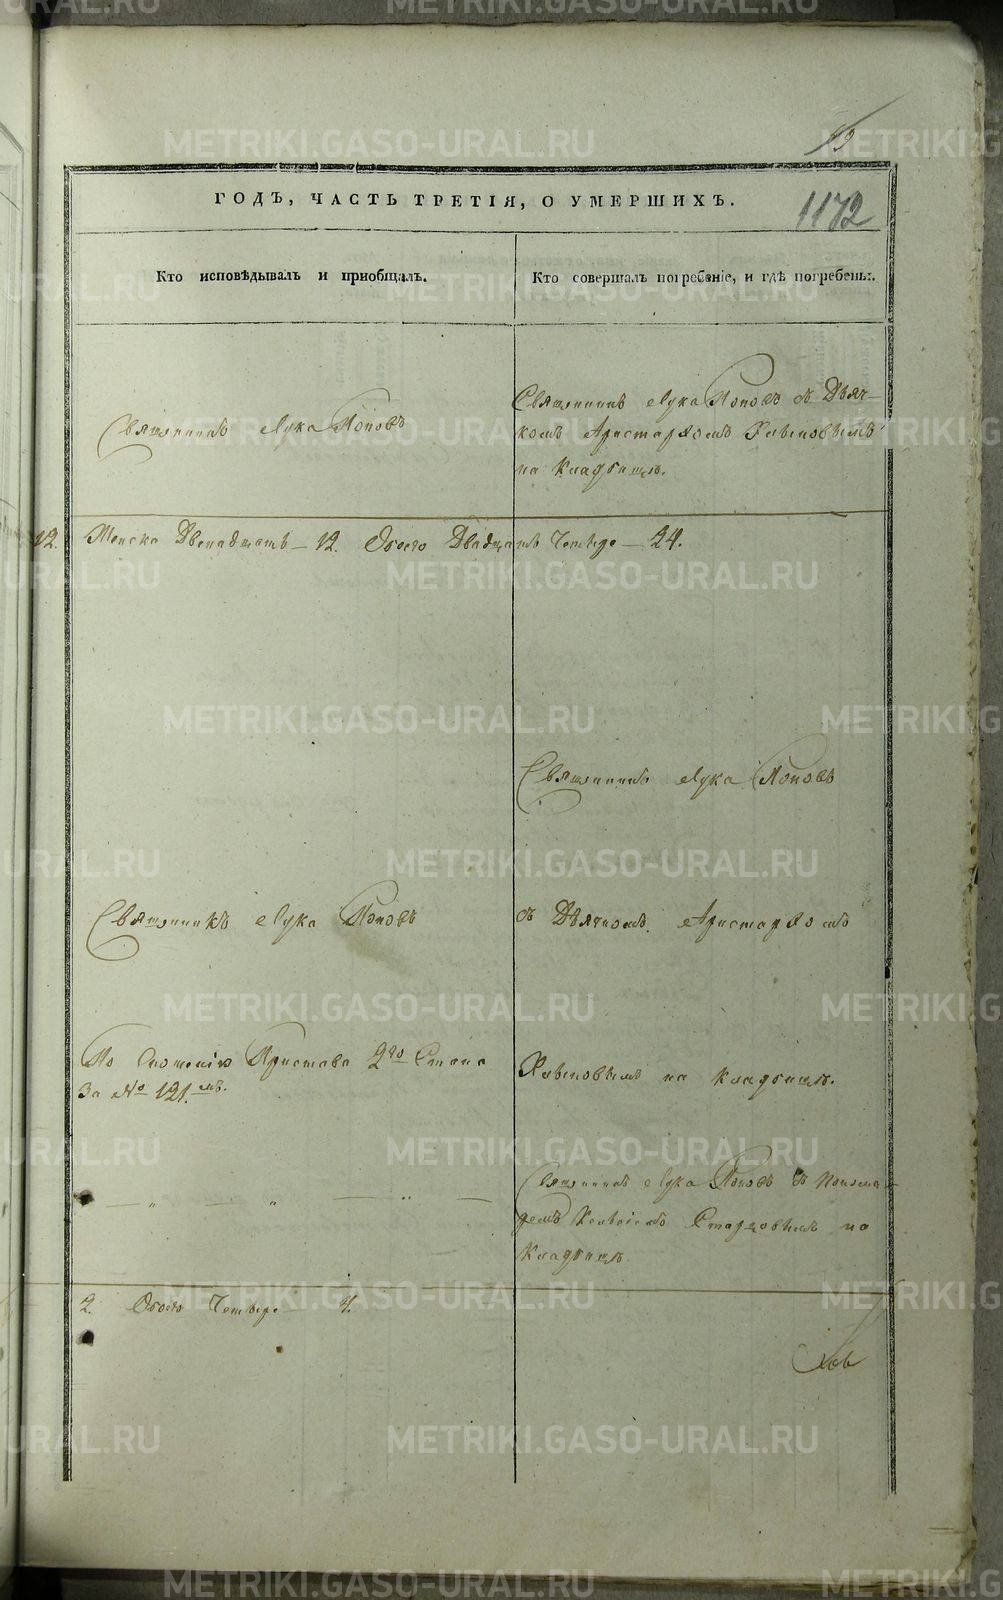 ГОДЪ, ЧАСТЬ ТРЕТІЯ, О УМЕРШИХЪ.
1172
Кто исповѣдывалъ и пріобщалъ.
Кто совершалъ погребеніе, и гдѣ погребены.
Священникъ Лука Поповъ
Священникъ Лука Поповъ съ Дьяч-
комъ Аристархомъ Хлыновымъ
на кладбищѣ.
12. Женска Двенадцать – 12. Обоего Двадцать Четыре – 24.
Священникъ Лука Поповъ
Священникъ Лука Поповъ
съ Дьячкомъ Аристархомъ
По Сношенію Пристава 2го Стана
За № 121.мъ.
Хлыновымъ на кладбищѣ.
— „ — „ — „ —
Священникъ Лука Поповъ съ Понома-
ремъ Старцовымъ на
Кладбищѣ
2. Обоего Четыре 4.
METRIKI.GASO-URAL.RU